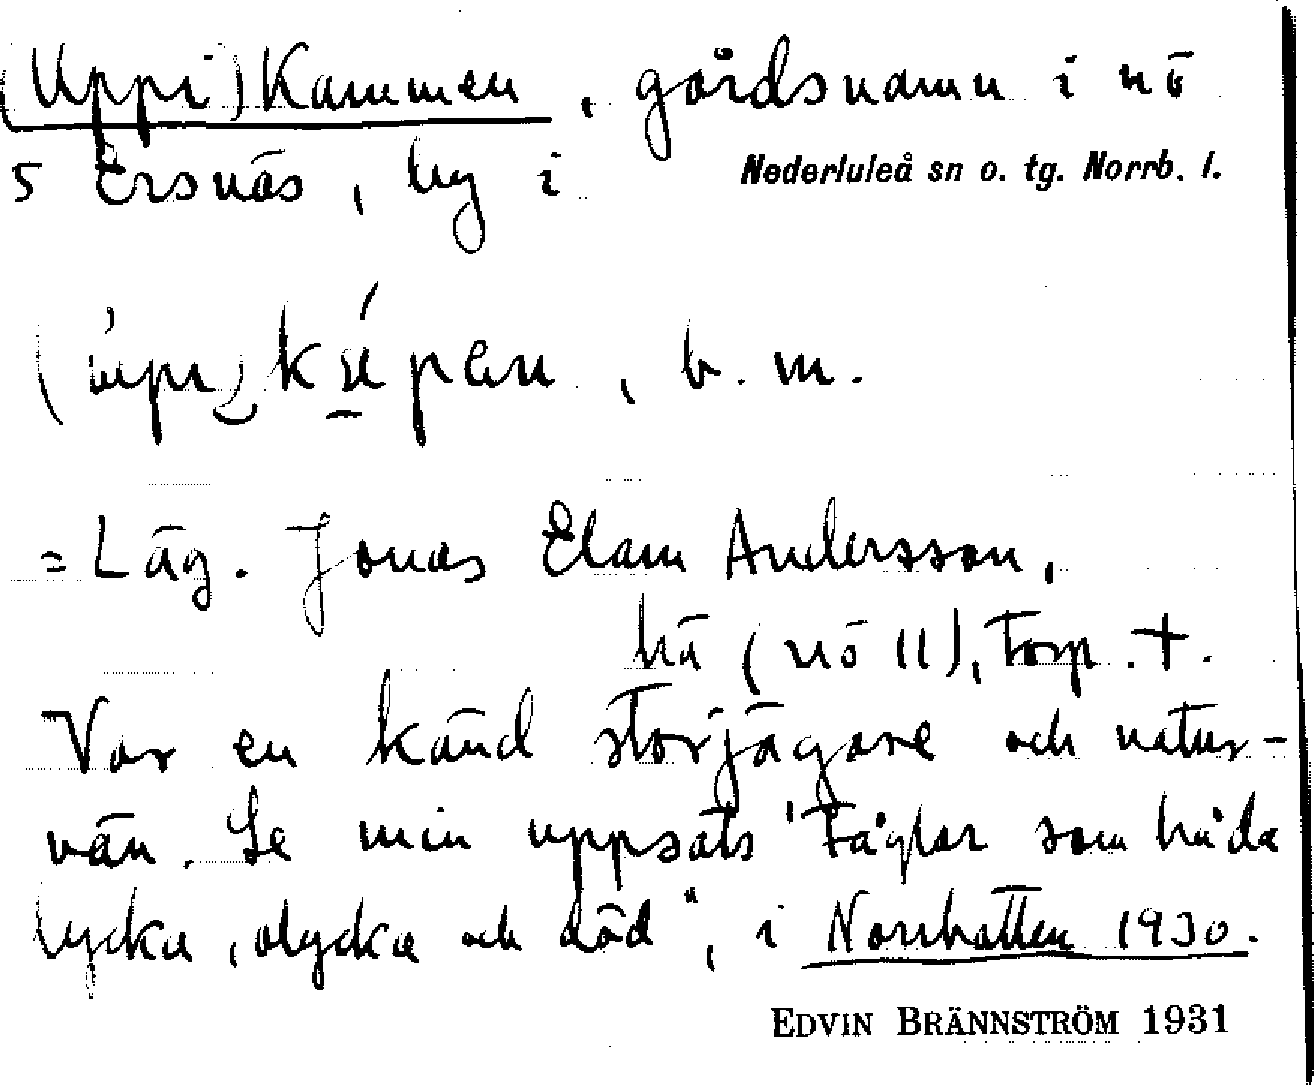 (Uppi) Kammen, gårdsnamn i nö
5 Ersnäs, by i Nederluleå sn o. tg. Norrb. l.
b. m.
= Läg. Jonas Elam Andersson,
hä (nö 11), Torp. †.
Var en känd storjägare och natur-
vän. Se min uppsats "Fåglar som båda
lycka, olycka och död", i Norrbotten 1930.
EDVIN BRÄNNSTRÖM 1931